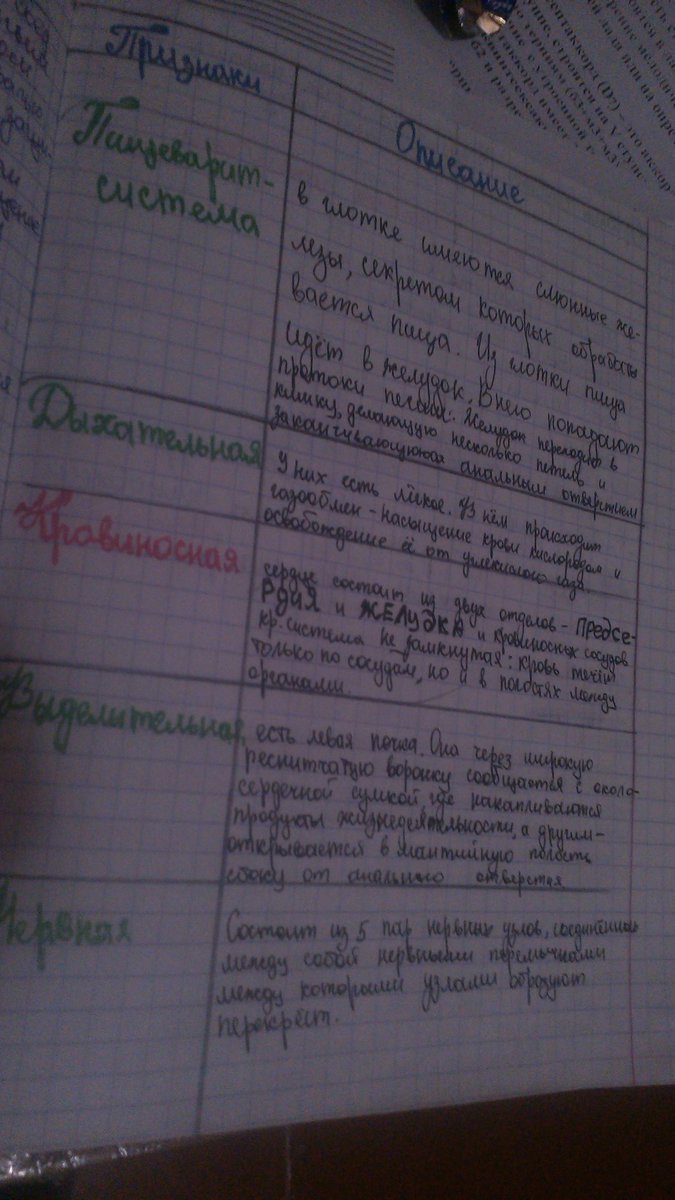 Признаки
Описание
Пищеварит-
система
в глотке имеются слюнные же-
лезы, секретом которых обрабаты
вается пища. Из глотки пища
идёт в желудок. В него попадают
протоки печени. Желудок переходит в
кишку, делающую несколько петель и
заканчивающуюся анальным отверстием
Дыхательная
У них есть лёгкое. В нём происходит
газообмен - насыщение крови кислородом и
освобождение её от углекислого газа.
Кровиносная
сердце состоит из двух отделов - ПРЕДСЕ-
РДИЯ и ЖЕЛУДКА и кровиносных сосудов
кр. система не замкнутая: кровь течёт
только по сосудам, но и в полостях между
органами.
Выделительная
есть левая почка. Она через широкую
реснитчатую воронку сообщается с около-
сердечной сумкой, где накапливаются
продукты жизнедеятельности, а другим-
открывается в мантийную полость
сбоку от анального отверстия
Нервная
Состоит из 5 пар нервных узлов, соединённых
между собой нервными перемычками
между которыми узлами образуют
перекрёст.